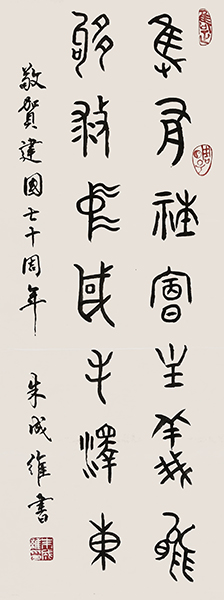 隻有社會主義能
夠救中國毛澤東
敬賀建國七十周年 朱成維書